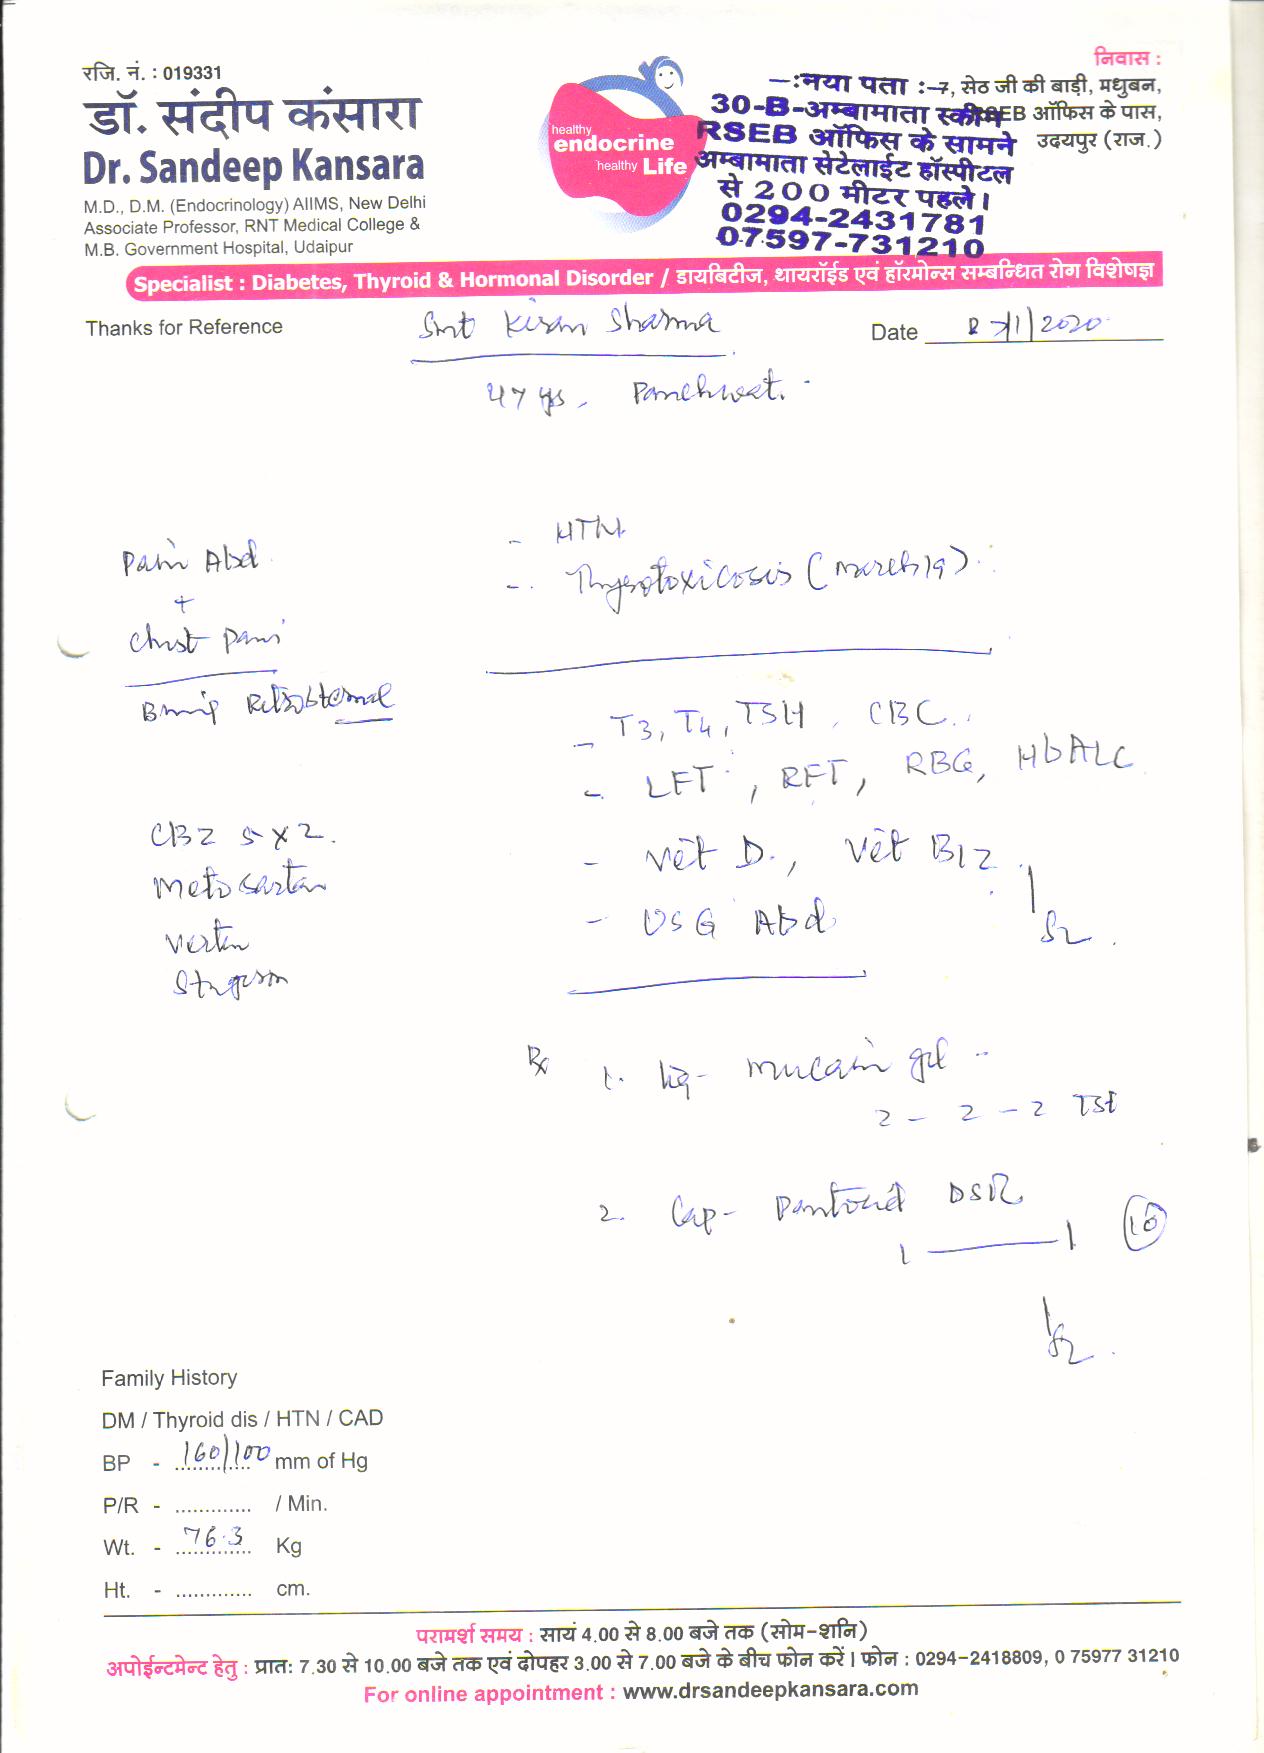 रजि. नं. : 019331
डॉ. संदीप कंसारा
Dr. Sandeep Kansara
M.D., D.M. (Endocrinology) AIIMS, New Delhi
Associate Professor, RNT Medical College &
M.B. Government Hospital, Udaipur
healthy
endocrine
healthy Life
निवास :
7, सेठ जी की बाड़ी, मधुबन,
RSEB ऑफिस के पास,
उदयपुर (राज.)
—:नया पता :—
30-B-अम्बामाता स्कीम
RSEB ऑफिस के सामने
अम्बामाता सेटेलाईट हॉस्पीटल
से 200 मीटर पहले।
0294-2431781
07597-731210
Specialist : Diabetes, Thyroid & Hormonal Disorder / डायबिटीज, थायरॉईड एवं हॉरमोन्स सम्बन्धित रोग विशेषज्ञ
Thanks for Reference Smt Kiran Sharma Date 27/1/2020
47 ys, Panchwat.
Pain Abd
+
Chest Pain
Retrosternal
- HTN
- Thyrotoxicosis (March/19)
- T3, T4, TSH, CBC
- LFT, RFT, RBG, HbA1C
- Vit D., Vit B12
- USG Abd
CBZ 5 x 2.
Metosartan
Vertin
Stugeron
Rx 1. Mucain gel
2 - 2 - 2 TSF
2. Cap- Pantocid DSR
1 — 1 (10)
Family History
DM / Thyroid dis / HTN / CAD
BP - 160/100 mm of Hg
P/R - ............. / Min.
Wt. - 76.3 Kg
Ht. - ............. cm.
परामर्श समय : सायं 4.00 से 8.00 बजे तक (सोम-शनि)
अपोईन्टमेन्ट हेतु : प्रात: 7.30 से 10.00 बजे तक एवं दोपहर 3.00 से 7.00 बजे के बीच फोन करें। फोन : 0294-2418809, 0 75977 31210
For online appointment : www.drsandeepkansara.com